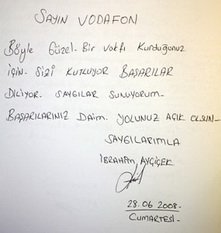 SAYIN VODAFON
BÖYLE GÜZEL BİR VAKFI KURDUĞUNUZ
İÇİN SİZİ KUTLUYOR BAŞARILAR
DİLİYOR SAYGILAR SUNUYORUM-
BAŞARILARINIZ DAİM YOLUNUZ AÇIK OLSUN-
SAYGILARIMLA
İBRAHİM AYÇİÇEK
28.06 2008-
CUMARTESİ-